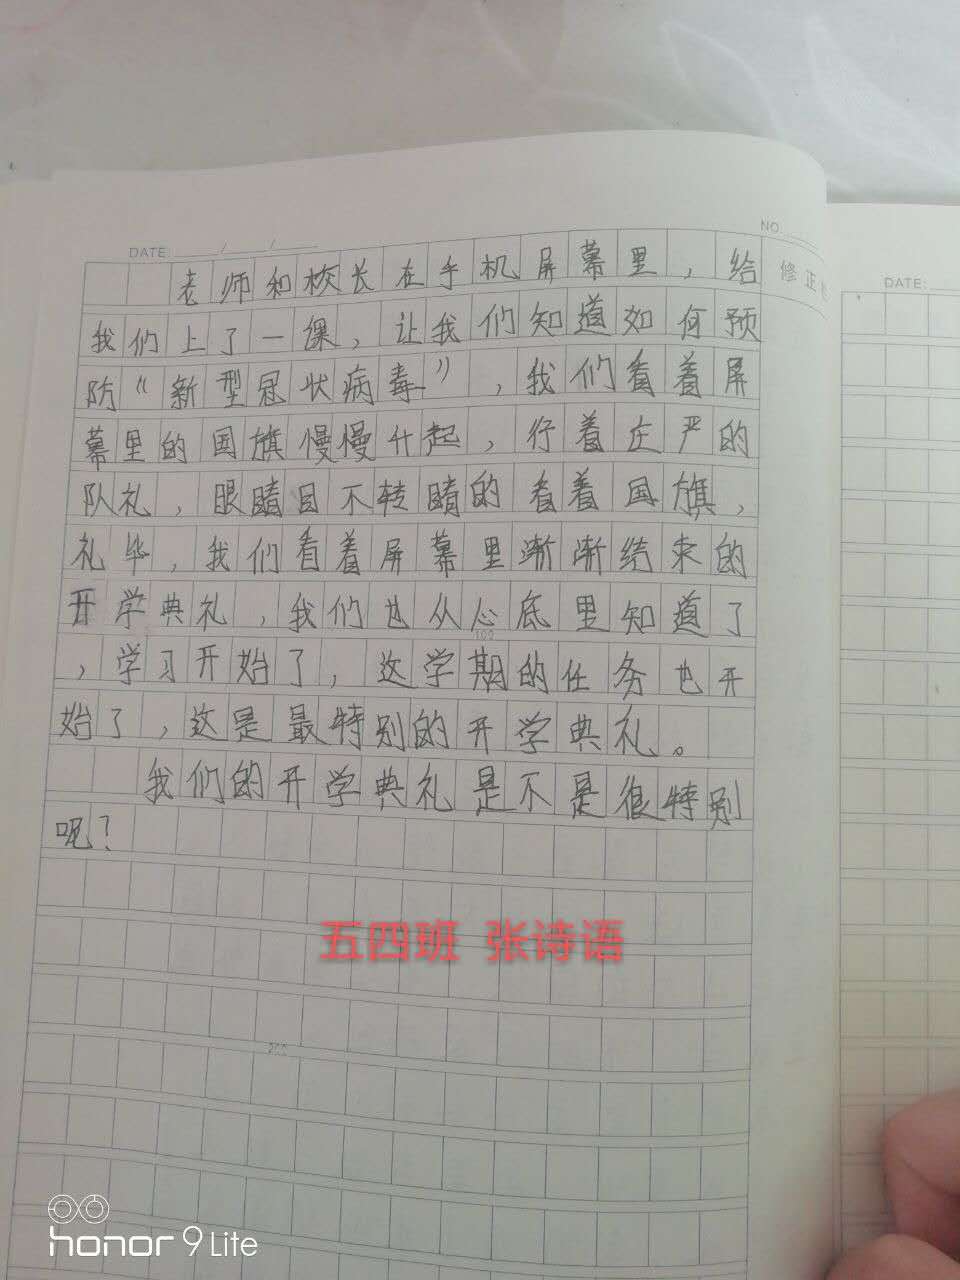 NO.
DATE: / /
修正
老师和校长在手机屏幕里，给
我们上了一课，让我们知道如何预
防“新型冠状病毒”，我们看着屏
幕里的国旗慢慢升起，行着庄严的
队礼，眼睛目不转睛的看着国旗，
礼毕，我们看着屏幕里渐渐结束的
开学典礼，我们也从心底里知道了
100
，学习开始了，这学期的任务也开
始了，这是最特别的开学典礼。
我们的开学典礼是不是很特别
呢？
五四班 张诗语
200
DATE:
honor 9 Lite